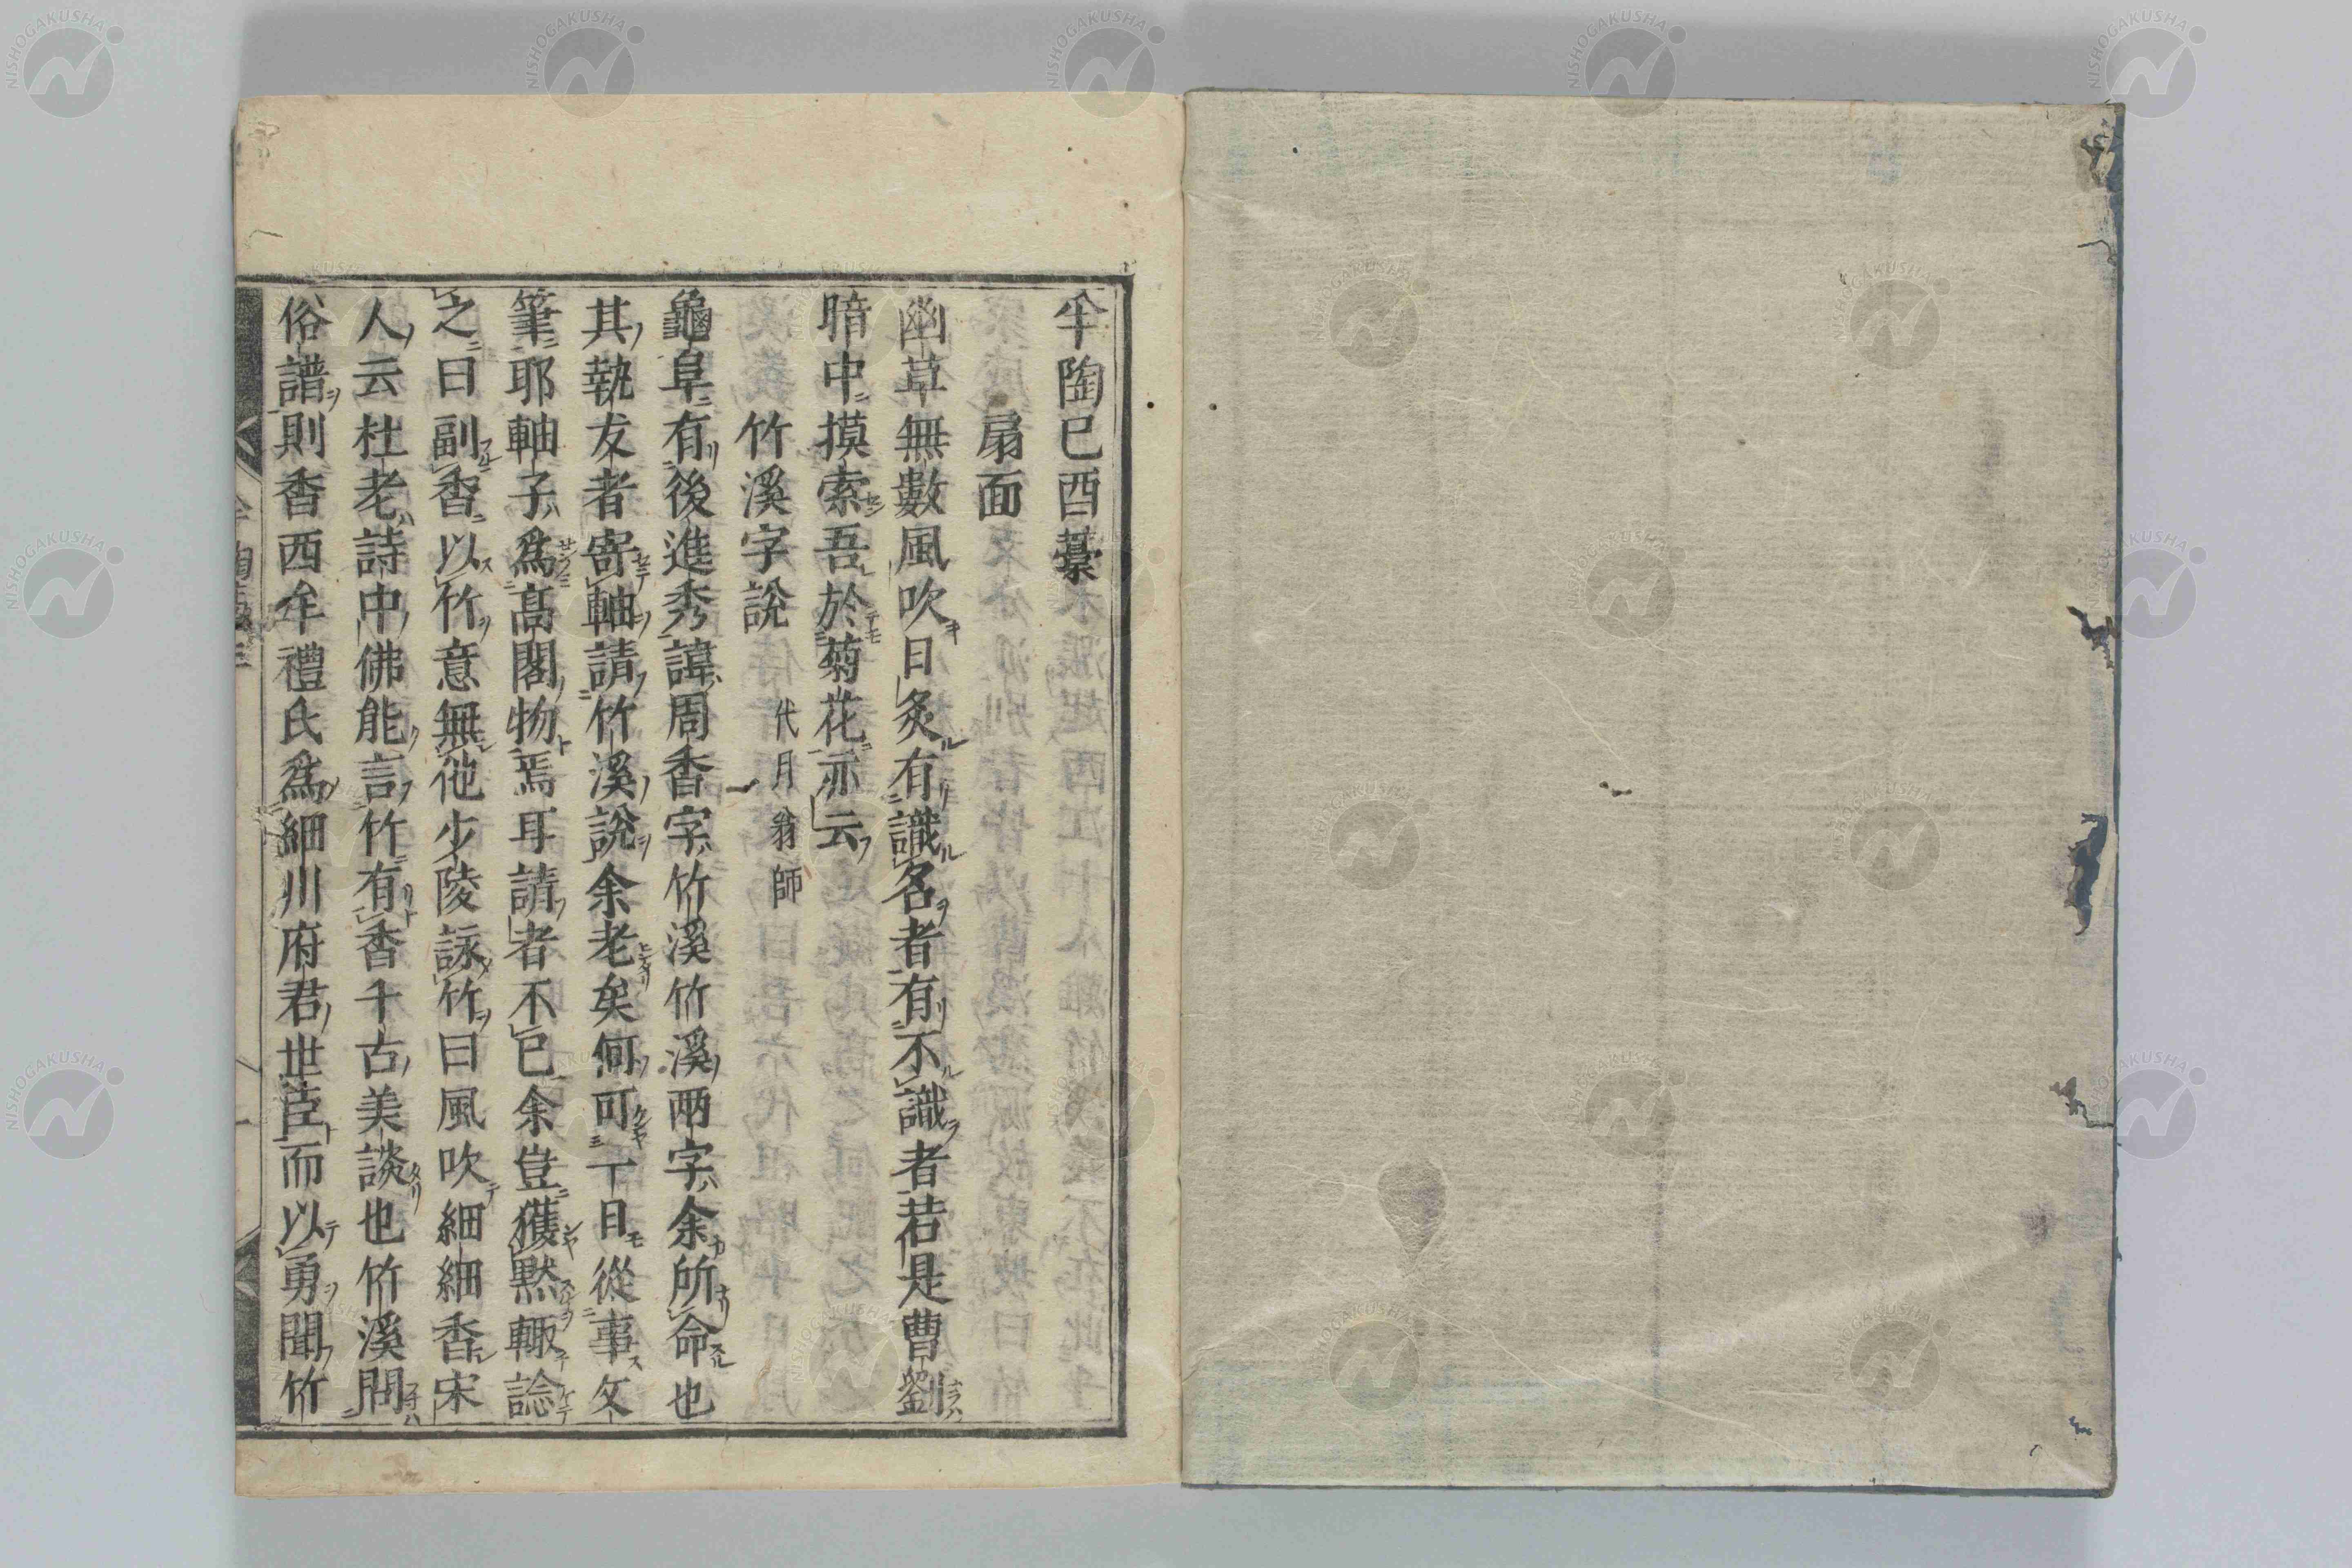 半陶己酉藁
扇面
幽草無數風吹日炙有識名者有不識者若是曹劉
暗中摸索吾於菊花亦云
竹溪字說 代月翁師
龜阜有後進秀諱周香字竹溪竹溪兩字余所命也
其執友者寄軸請竹溪說余老矣何可一日從事文
筆耶軸子爲高閣物焉耳請者不已余豈獲默輙諗
之曰副香以竹意無他少陵詠竹曰風吹細細香宋
人云杜老詩中佛能言竹有香千古美談也竹溪問
俗譜則香西牟禮氏爲細川府君世臣而以勇聞竹
NISHOGAKUSHA